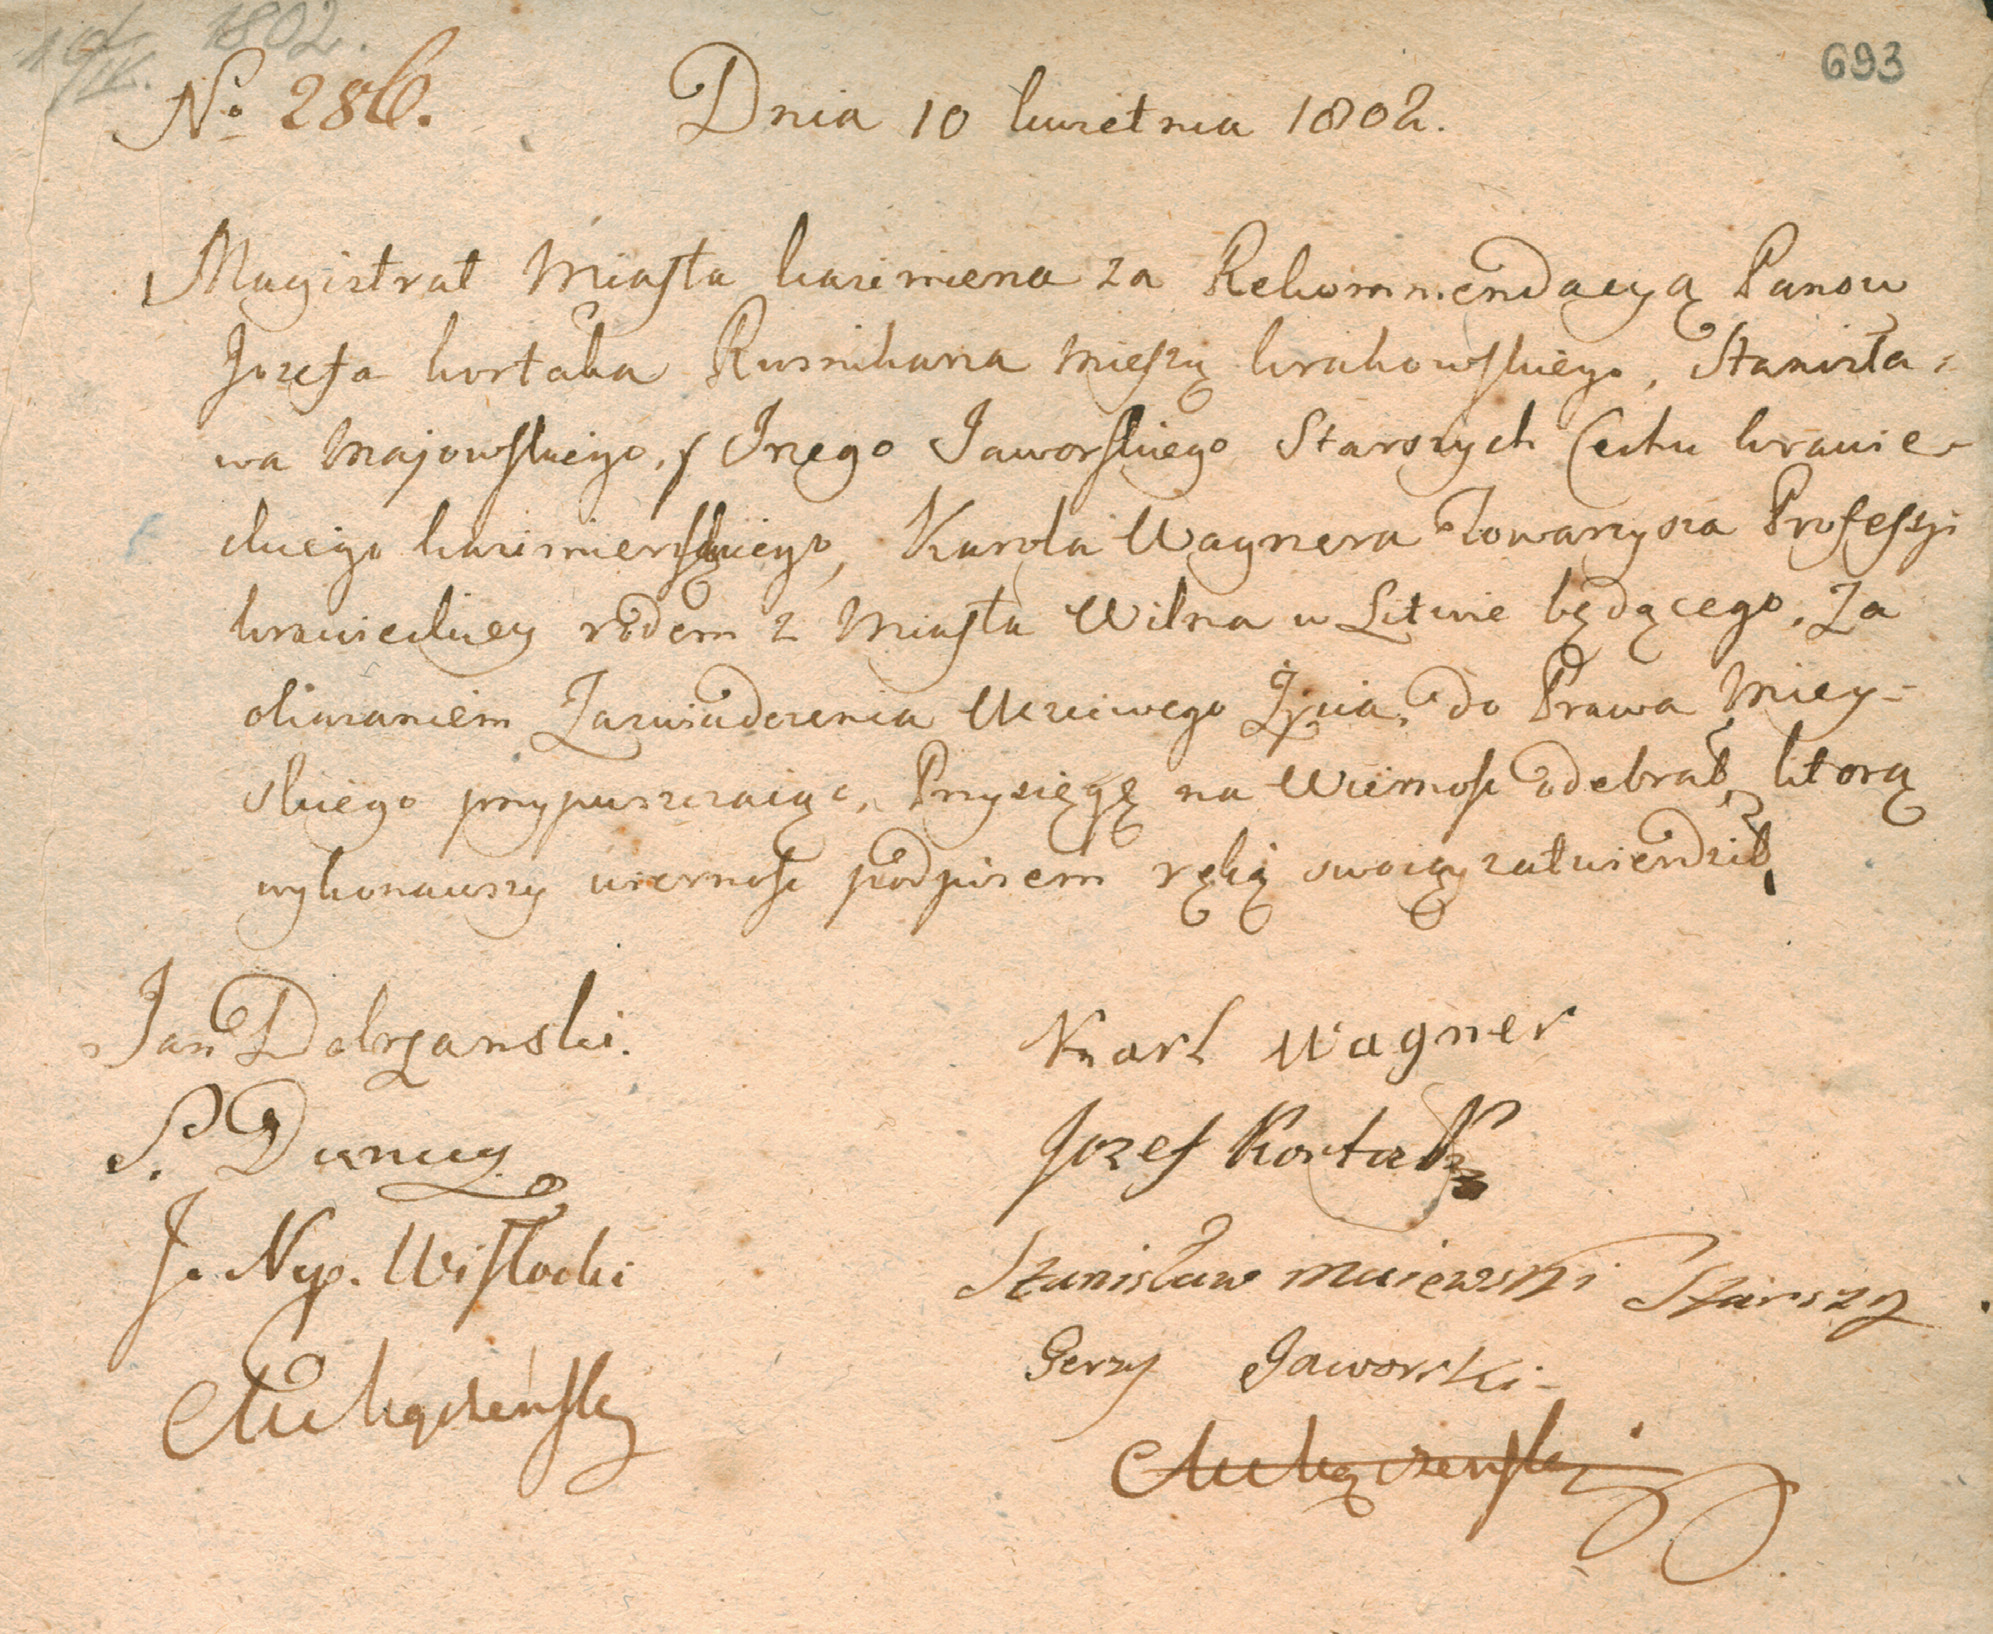 10/IV. 1802.
693
No 286.
Dnia 10 kwietnia 1802.
Magistrat Miasta kazimierza za Rekommendacyą Panow
Jozefa kortaba Kusnirza Mieszcz krakowskiego, Stanisła=
wa Majowskiego, y Jrzego Jaworskiego Starszych Cechu krawie-
ckiego kazimierskiego, Karola Wagnera Towarzysza Professyi
krawieckiey rodem z Miasta Wilna w Litwie będącego, Za
okazaniem Zazwiadczenia Uczciwego Życia, do Prawa Miey-
skiego przypuszczaiąc, Przysięgę na Wiernosc odebrał, ktorą
wykonawszy wiernosc podpisem ręką swoią zatwierdził,
Jan Dobrzanski.
Karl Wagner
S. Duncy
Jozef Kortab
J. Nep. Wisłocki
Stanisław maiewski Starszy
Gerzy Jaworski-